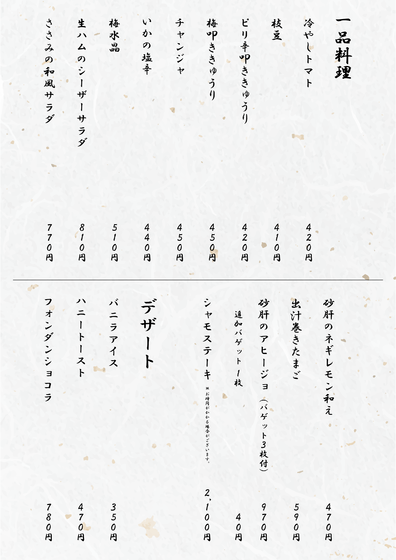 一品料理
冷やしトマト 420円
枝豆 410円
ピリ辛叩ききゅうり 420円
梅叩ききゅうり 450円
チャンジャ 450円
いかの塩辛 440円
梅水晶 510円
生ハムのシーザーサラダ 810円
ささみの和風サラダ 770円
砂肝のネギレモン和え 470円
出汁巻きたまご 590円
砂肝のアヒージョ（バゲット3枚付） 970円
追加バゲット1枚 40円
シャモステーキ ※お時間がかかる場合がございます。 2,100円
デザート
バニラアイス 350円
ハニートースト 470円
フォンダンショコラ 780円